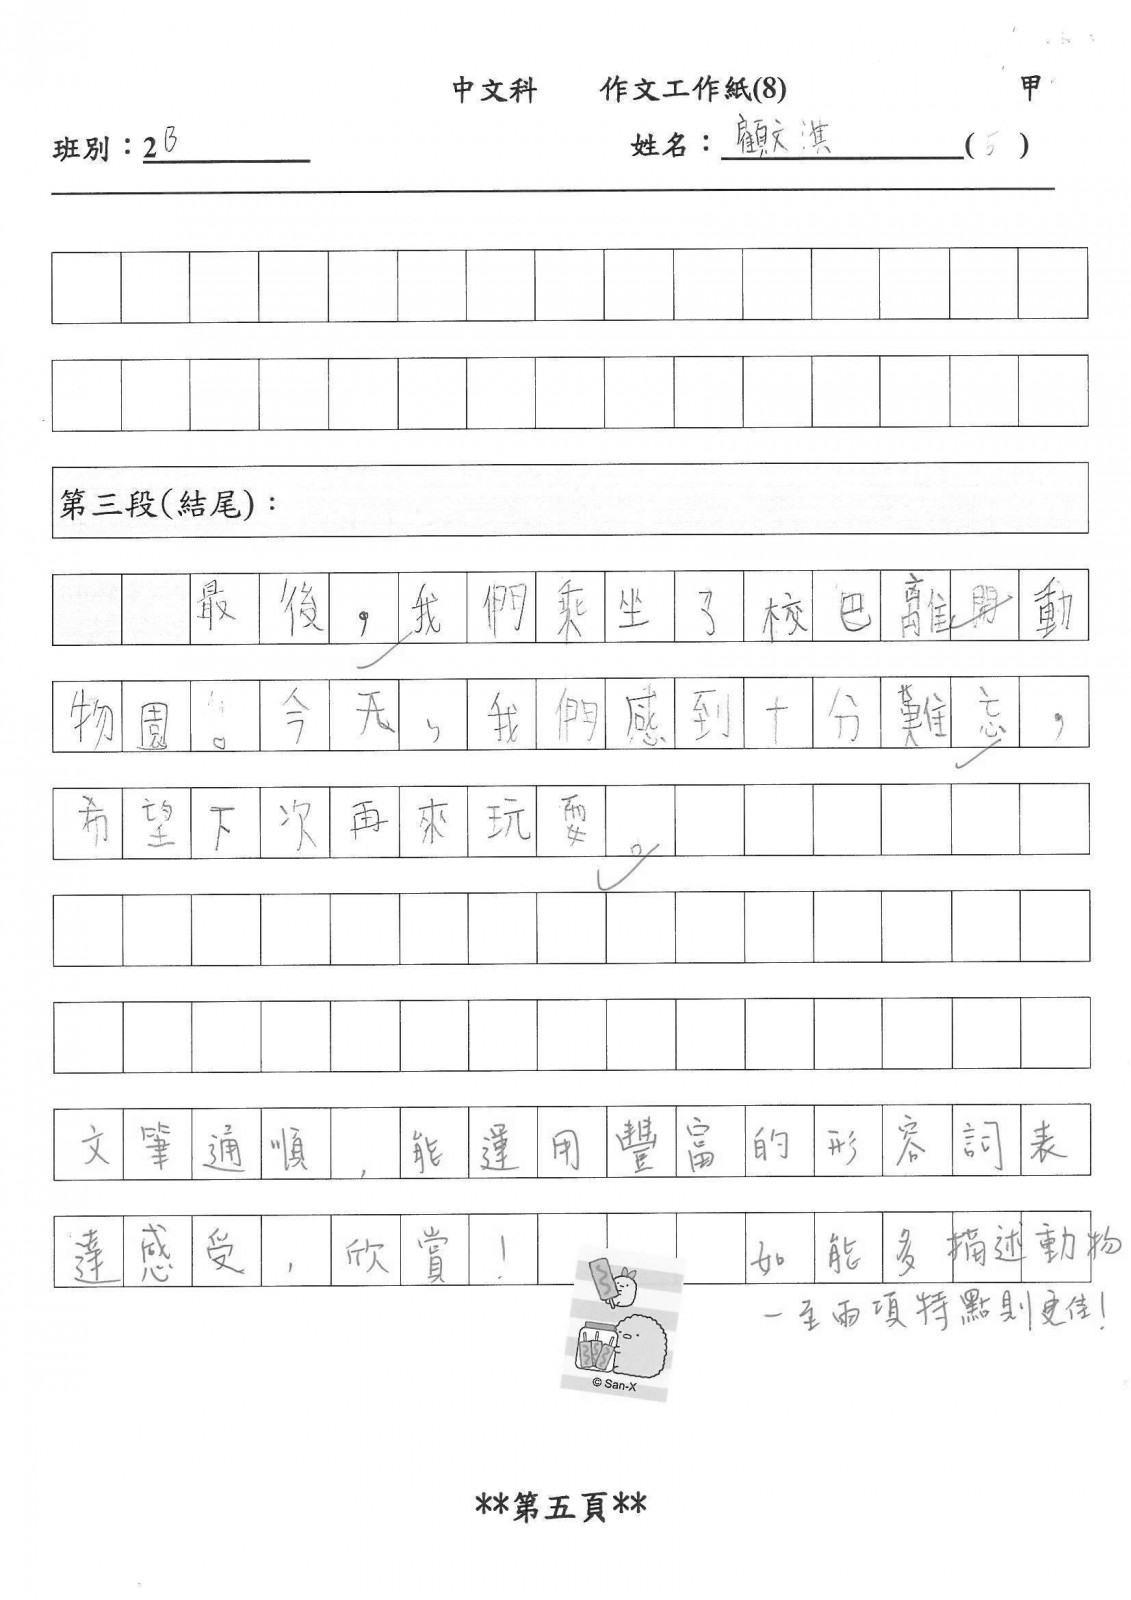 中文科 作文工作紙(8) 甲
班別：2B 姓名：顧文淇 (5)
第三段(結尾)：
最後，我們乘坐了校巴離開動
物園。今天，我們感到十分難忘，
希望下次再來玩耍。
文筆通順，能運用豐富的形容詞表
達感受，欣賞！ 如能多描述動物
一至兩項特點則更佳！
© San-X
**第五頁**